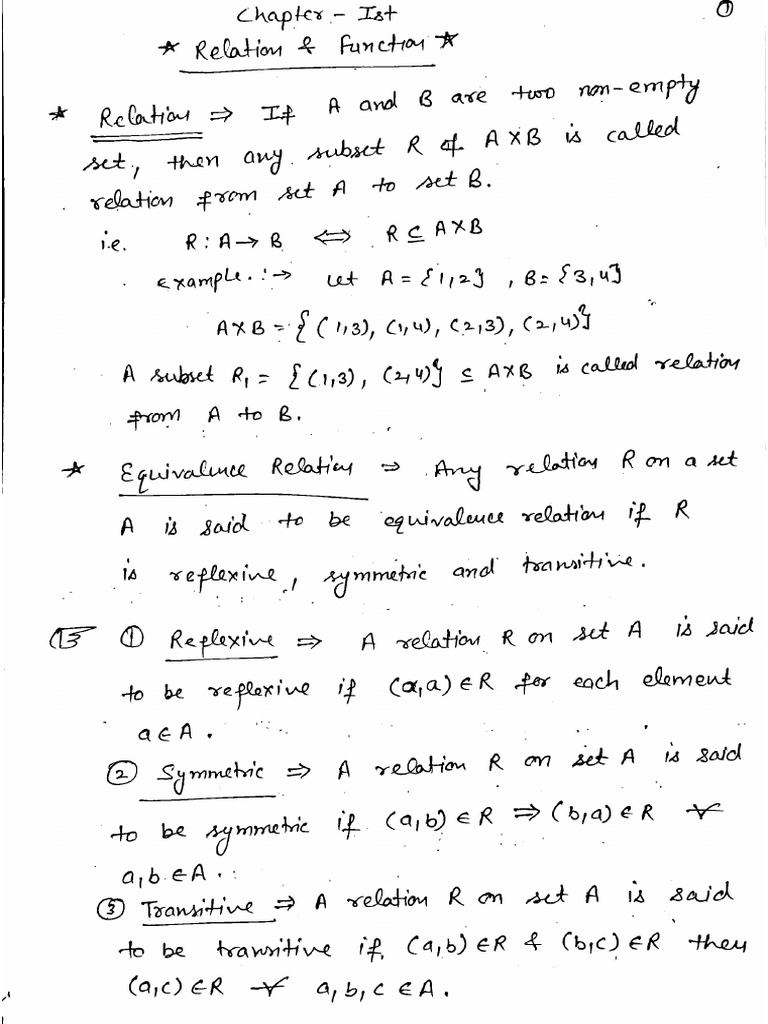 Chapter - Ist
①
* Relation & Function *
* Relation ⇒ If A and B are two non-empty
set, then any subset R of A×B is called
relation from set A to set B.
i.e. R : A → B ⇔ R ⊆ A×B
example. :→ Let A = {1,2} , B = {3,4}
A×B = { (1,3), (1,4), (2,3), (2,4)}
A subset R₁ = {(1,3), (2,4)} ⊆ A×B is called relation
from A to B.
* Equivalence Relation ⇒ Any relation R on a set
A is said to be equivalence relation if R
is reflexive, symmetric and transitive.
① Reflexive ⇒ A relation R on set A is said
to be reflexive if (a,a) ∈ R for each element
a ∈ A.
② Symmetric ⇒ A relation R on set A is said
to be symmetric if (a,b) ∈ R ⇒ (b,a) ∈ R ∀
a,b ∈ A.
③ Transitive ⇒ A relation R on set A is said
to be transitive if, (a,b) ∈ R & (b,c) ∈ R then
(a,c) ∈ R ∀ a, b, c ∈ A.